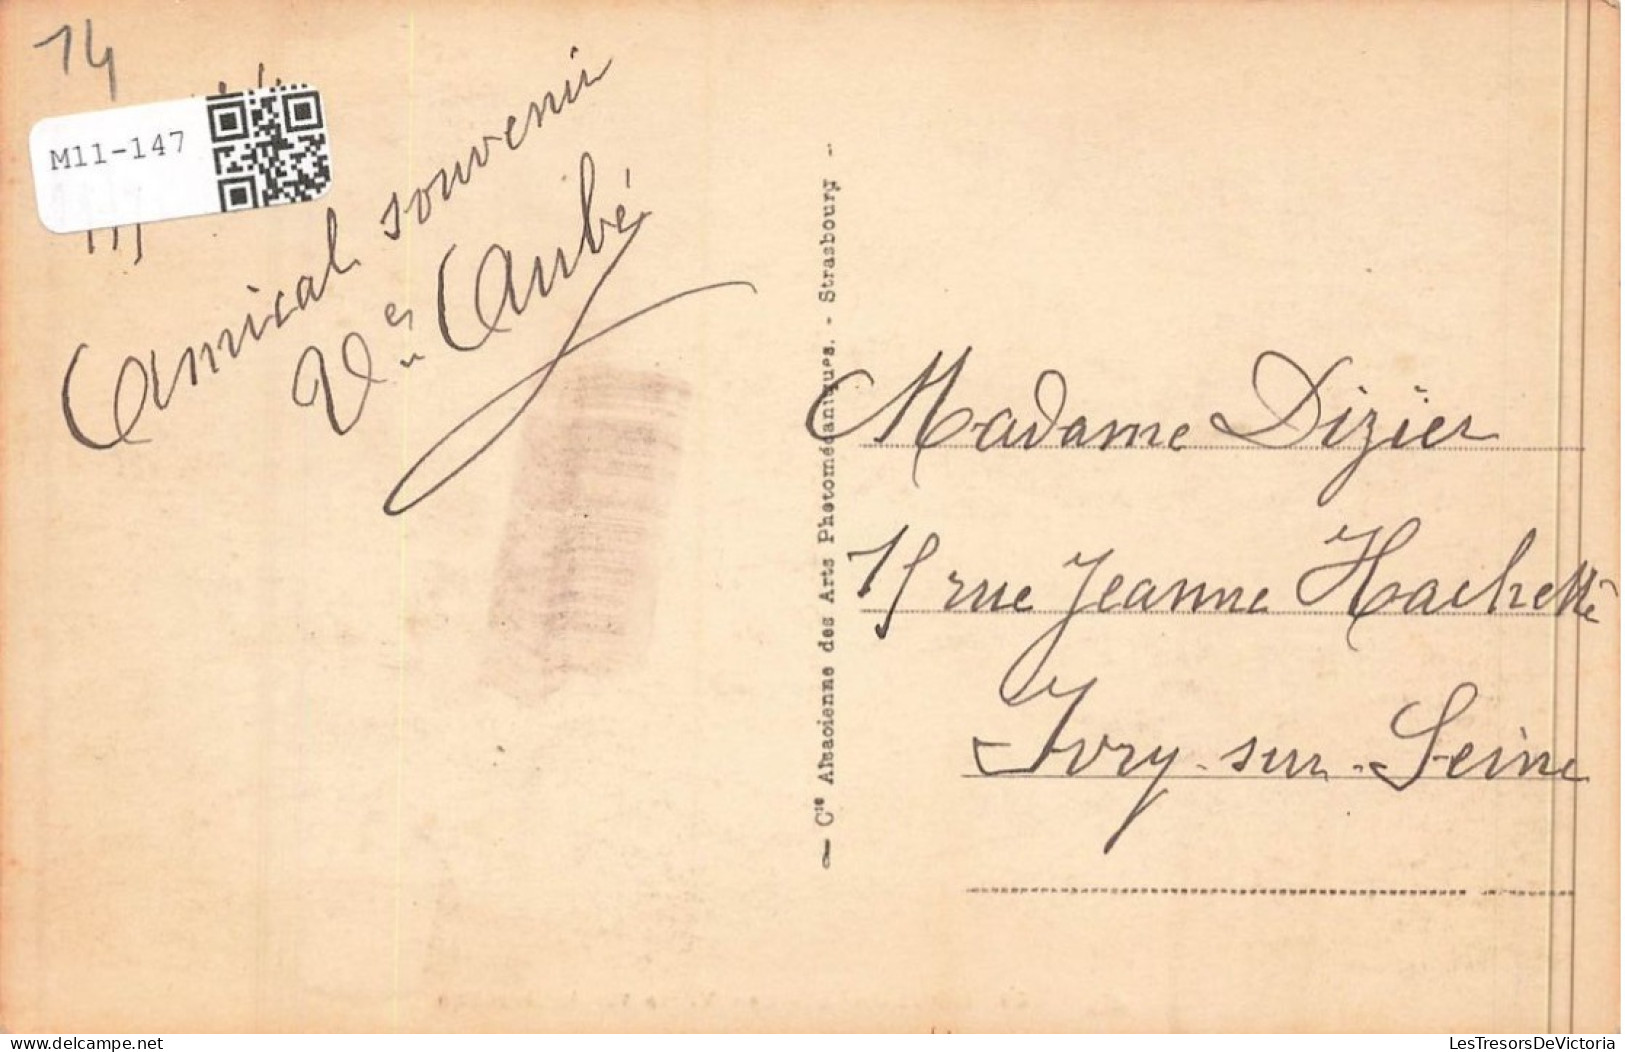 14
M11-147
Amical souvenir
Aubé
— Cie Alsacienne des Arts Photomécaniques. - Strasbourg -
Madame Dizier
15 rue Jeanne Hachette
Ivry-sur-Seine
LesTresorsDeVictoria